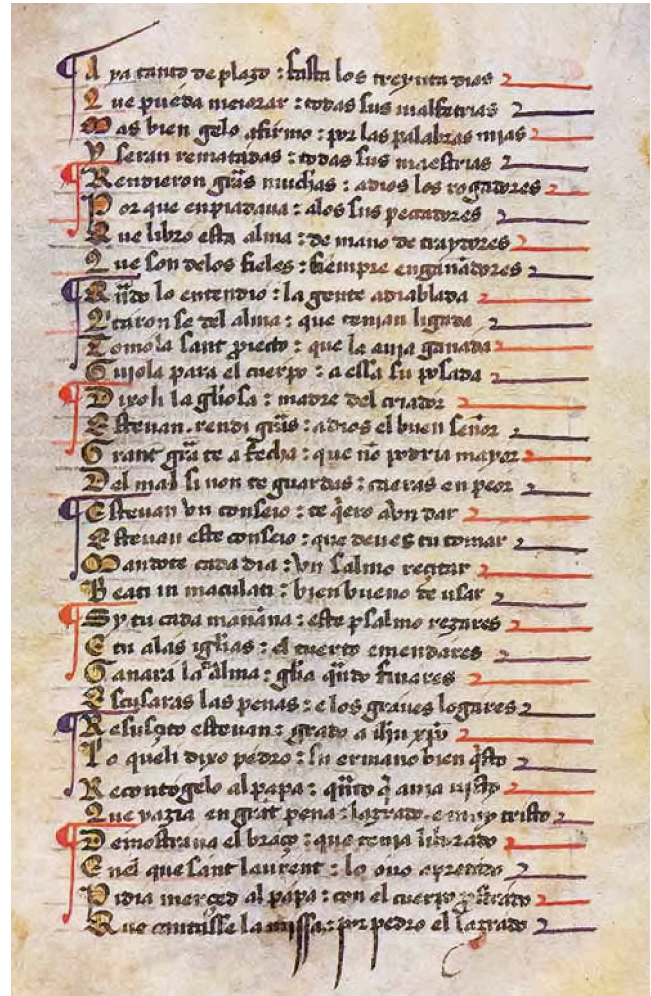 A ya tanto de plazo : fasta los treynta dias
Que pueda meiorar : todas sus malfetrias
Mas bien gelo afirmo : por las palabras mias
Y seran rematadas : todas sus maestrias
Rendieron gr̃as muchas : a dios los rogadores
Por que enpiadaua : alos sus peccadores
Que libro esta alma : de mano de traydores
Que son delos fieles : siempre engañadores
Qñdo lo entendio : la gente adiablada
Quitaron se del alma : que tenian ligada
Tomola sant proiecto : que la auja ganada
Gujola para el cuerpo : a essa su posada
Dixoli la gl̃iosa : madre del criador
Estevan . rendi gr̃as : a dios el buen señor
Grant gr̃a te a fecha : que nõ podria mayor
Del mal si non te guardas : caeras en peor
Estevan vn conseio : te q̃ero avn dar
Estevan este conseio : que deues tu tomar
Mandote cada dia : vn salmo rezitar
Beati in maculati : bien bueno de usar
Sy tu cada mañana : este psalmo rezares
E tu alas igl̃ias : el tuerto emendares
Ganara la alma : gl̃ia qñdo finares
Escusaras las penas : e los graues logares
Resusçito estevan : grado a ih̃u xp̃o
Lo queli dixo pedro : su ermano bien q̃sto
Recontogelo al papa : qñto q̃ auja visto
Que yazia en grãt pena : lazrado e muy tristo
Demostraua el braço : que tenja liurado
E nel que sant laurent : lo ouo apretado
Pidia merced al papa : con el cuerpo p̃strado
Que cantasse la missa : por pedro el lazrado